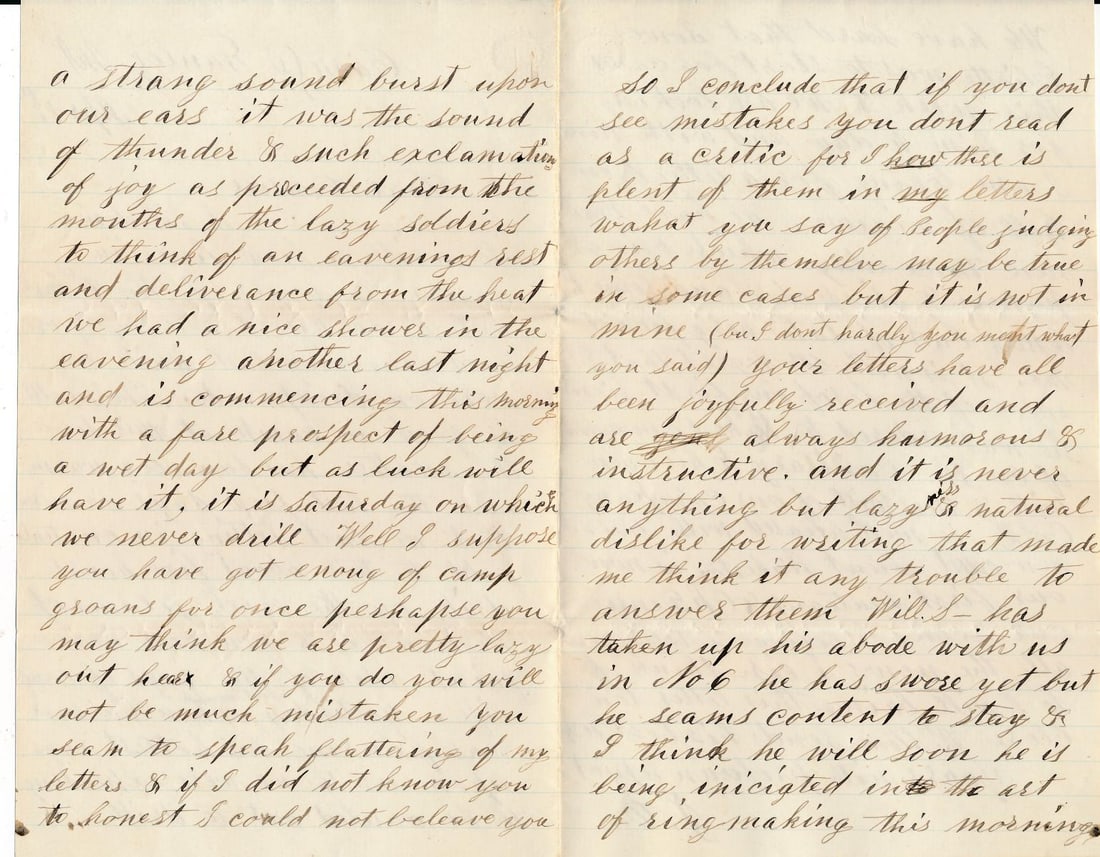 a strang sound burst upon
our ears it was the sound
of thunder & such exclamation
of joy as proceeded from the
mouths of the lazy soldiers
to think of an eavenings rest
and deliverance from the heat
we had a nice shower in the
eavening another last night
and is commencing this morning
with a fare prospect of being
a wet day but as luck will
have it, it is saturday on which
we never drill Well I suppose
you have got enoug of camp
groans for once perhapse you
may think we are pretty lazy
out hear & if you do you will
not be much mistaken You
seam to speak flattering of my
letters & if I did not know you
to honest I could not beleave you
so I conclude that if you dont
see mistakes you dont read
as a critic for I how thre is
plent of them in my letters
wahat you say of People judging
others by themselve may be true
in some cases but it is not in
mine (bu I dont hardly you ment what
you said) your letters have all
been joyfully received and
are always humorous &
instructive. and it is never
anything but lazyness & natural
dislike for writing that made
me think it any trouble to
answer them Will. S- has
taken up his abode with us
in No 6 he has swore yet but
he seams content to stay &
I think he will soon he is
being iniciated into the art
of ringmaking this morning